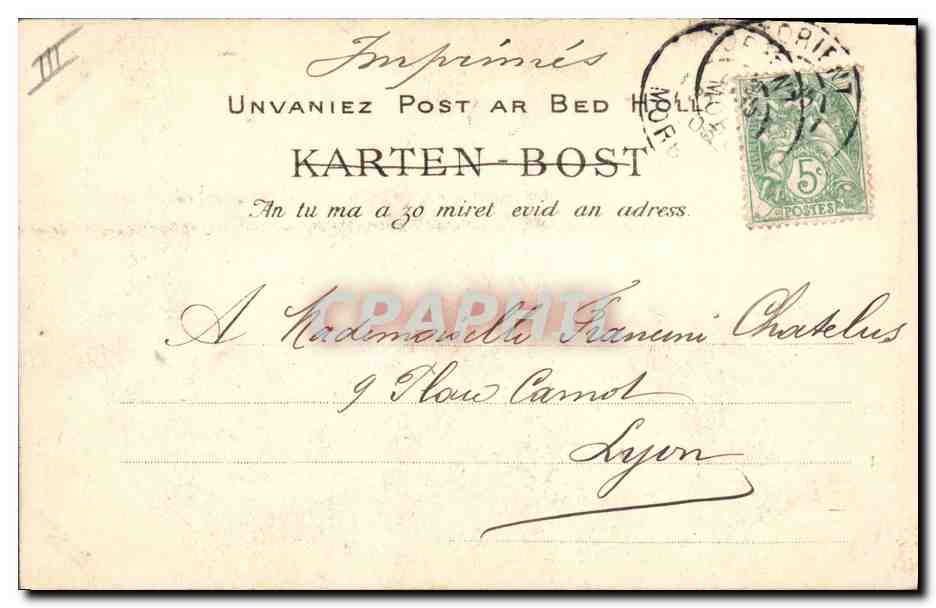 III
Imprimés
UNVANIEZ POST AR BED HOLL
KARTEN-BOST
An tu ma a zo miret evid an adress.
5c
POSTES
CPAPHIL
A Mademoiselle Francini Chatelus
9 Place Carnot
Lyon